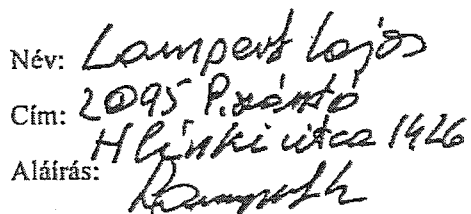 Név: Lampert Lajos
Cím: 2095 P.szántó
Hlinki utca 1426
Aláírás: